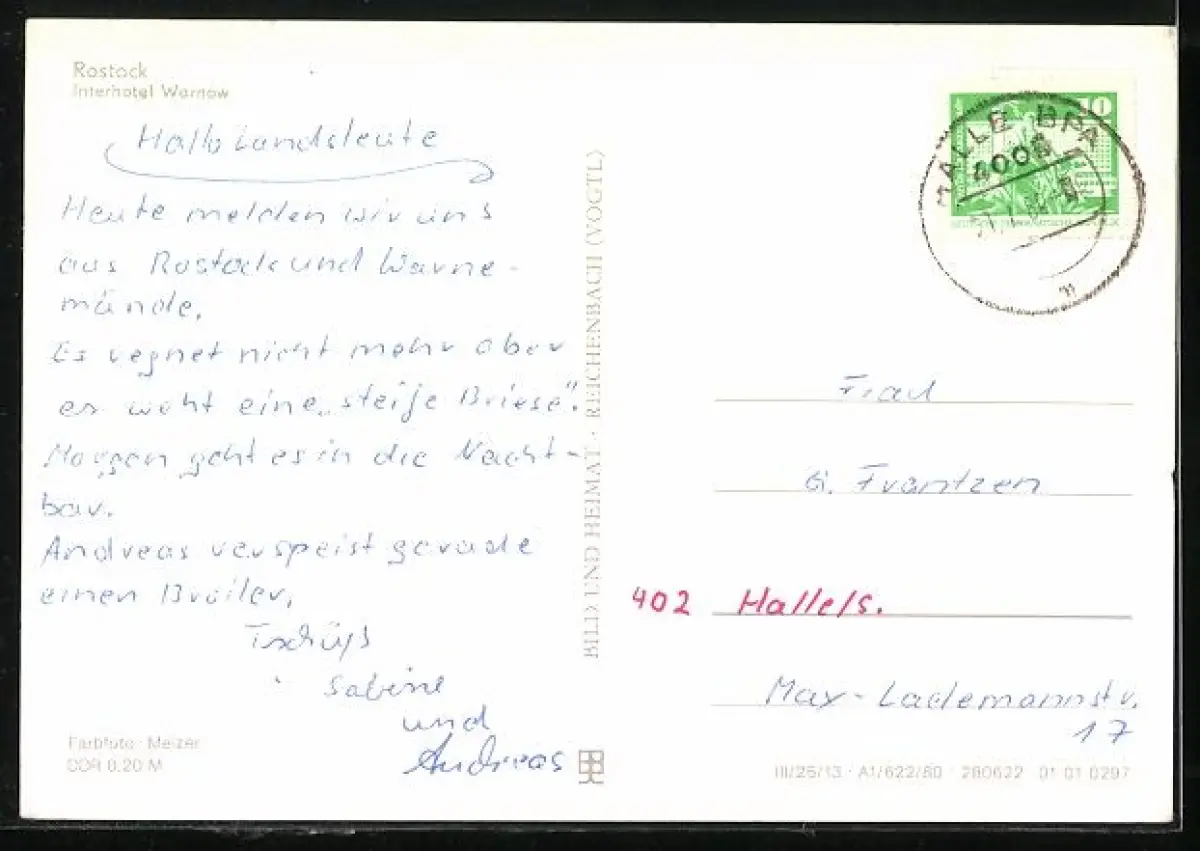 Rostock
Interhotel Warnow
Hallo Landsleute
Heute melden wir uns
aus Rostock und Warne-
münde.
Es regnet nicht mehr aber
es weht eine „steife Briese".
Morgen geht es in die Nacht-
bar.
Andreas verspeist gerade
einen Broiler.
Tschüß
Sabine
und
Andreas
Farbfoto: Melzer
DDR 0,20 M
BILD UND HEIMAT · REICHENBACH (VOGTL)
10
HALLE BPA
4006
Frau
G. Frantzen
402 Halle/S.
Max-Lademannstr.
17
III/26/13 · A1/622/80 · 280622 01 01 0297